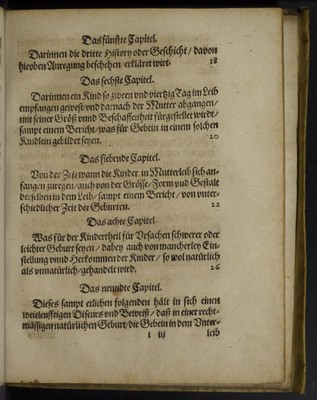 Das fünffte Capitel.
Darinnen die dritte History oder Geschicht / davon
hieoben Anregung beschehen erkläret wirt. 18
Das sechste Capitel.
Darinnen ein Kind so zween vnd viertzig Tag im Leib
empfangen gewest / vnd darnach der Mutter abgangen /
mit seiner Größ vnnd Beschaffenheit fürgestellet wirdt /
sampt einem Bericht / was für Gebein in einem solchen
Kindlein gebildet seyen. 20
Das siebende Capitel.
Von der Zeit wann die Kinder in Mutterleib sich an-
fangen zuregen / auch von der Grösse / Form vnd Gestalt
derselben in dem Leib / sampt einem Bericht / von vnter-
schiedlicher Zeit der Geburten. 22
Das achte Capitel.
Was für der Kindertheil für Vrsachen schwerer oder
leichter Geburt seyen / dabey auch von mancherley Ein-
stellung vnnd Herkommen der Kinder / so wol natürlich
als vnnatürlich / gehandelt wird. 26
Das neundte Capitel.
Dieses sampt etlichen folgenden hält in sich einen
weitleufftigen Discurs vnd Beweiß / daß in einer recht-
mässigen natürlichen Geburt / die Gebein in dem Vnter-
i iij leib